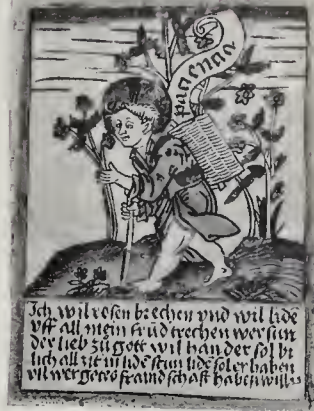 pacencia
Ich wil rosen brechen vnd wil lide
vff all mein frúd trechen wer sun
der lieb zú gott wil han der sol bi
lich all zit in lidē stun lidē sol er haben
vil wer gotes fraind schaft haben will